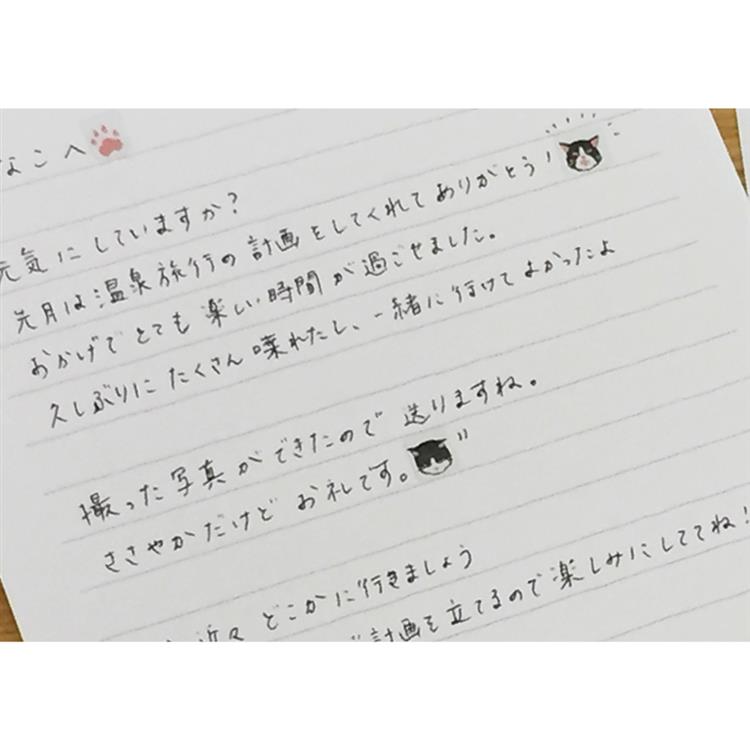 なこへ
元気にしていますか?
先月は温泉旅行の計画をしてくれてありがとう!
おかげでとても楽しい時間が過ごせました。
久しぶりにたくさん喋れたし、一緒に行けてよかったよ
撮った写真ができたので送りますね。
ささやかだけどお礼です。
近々どこかに行きましょう
計画を立てるので楽しみにしててね!